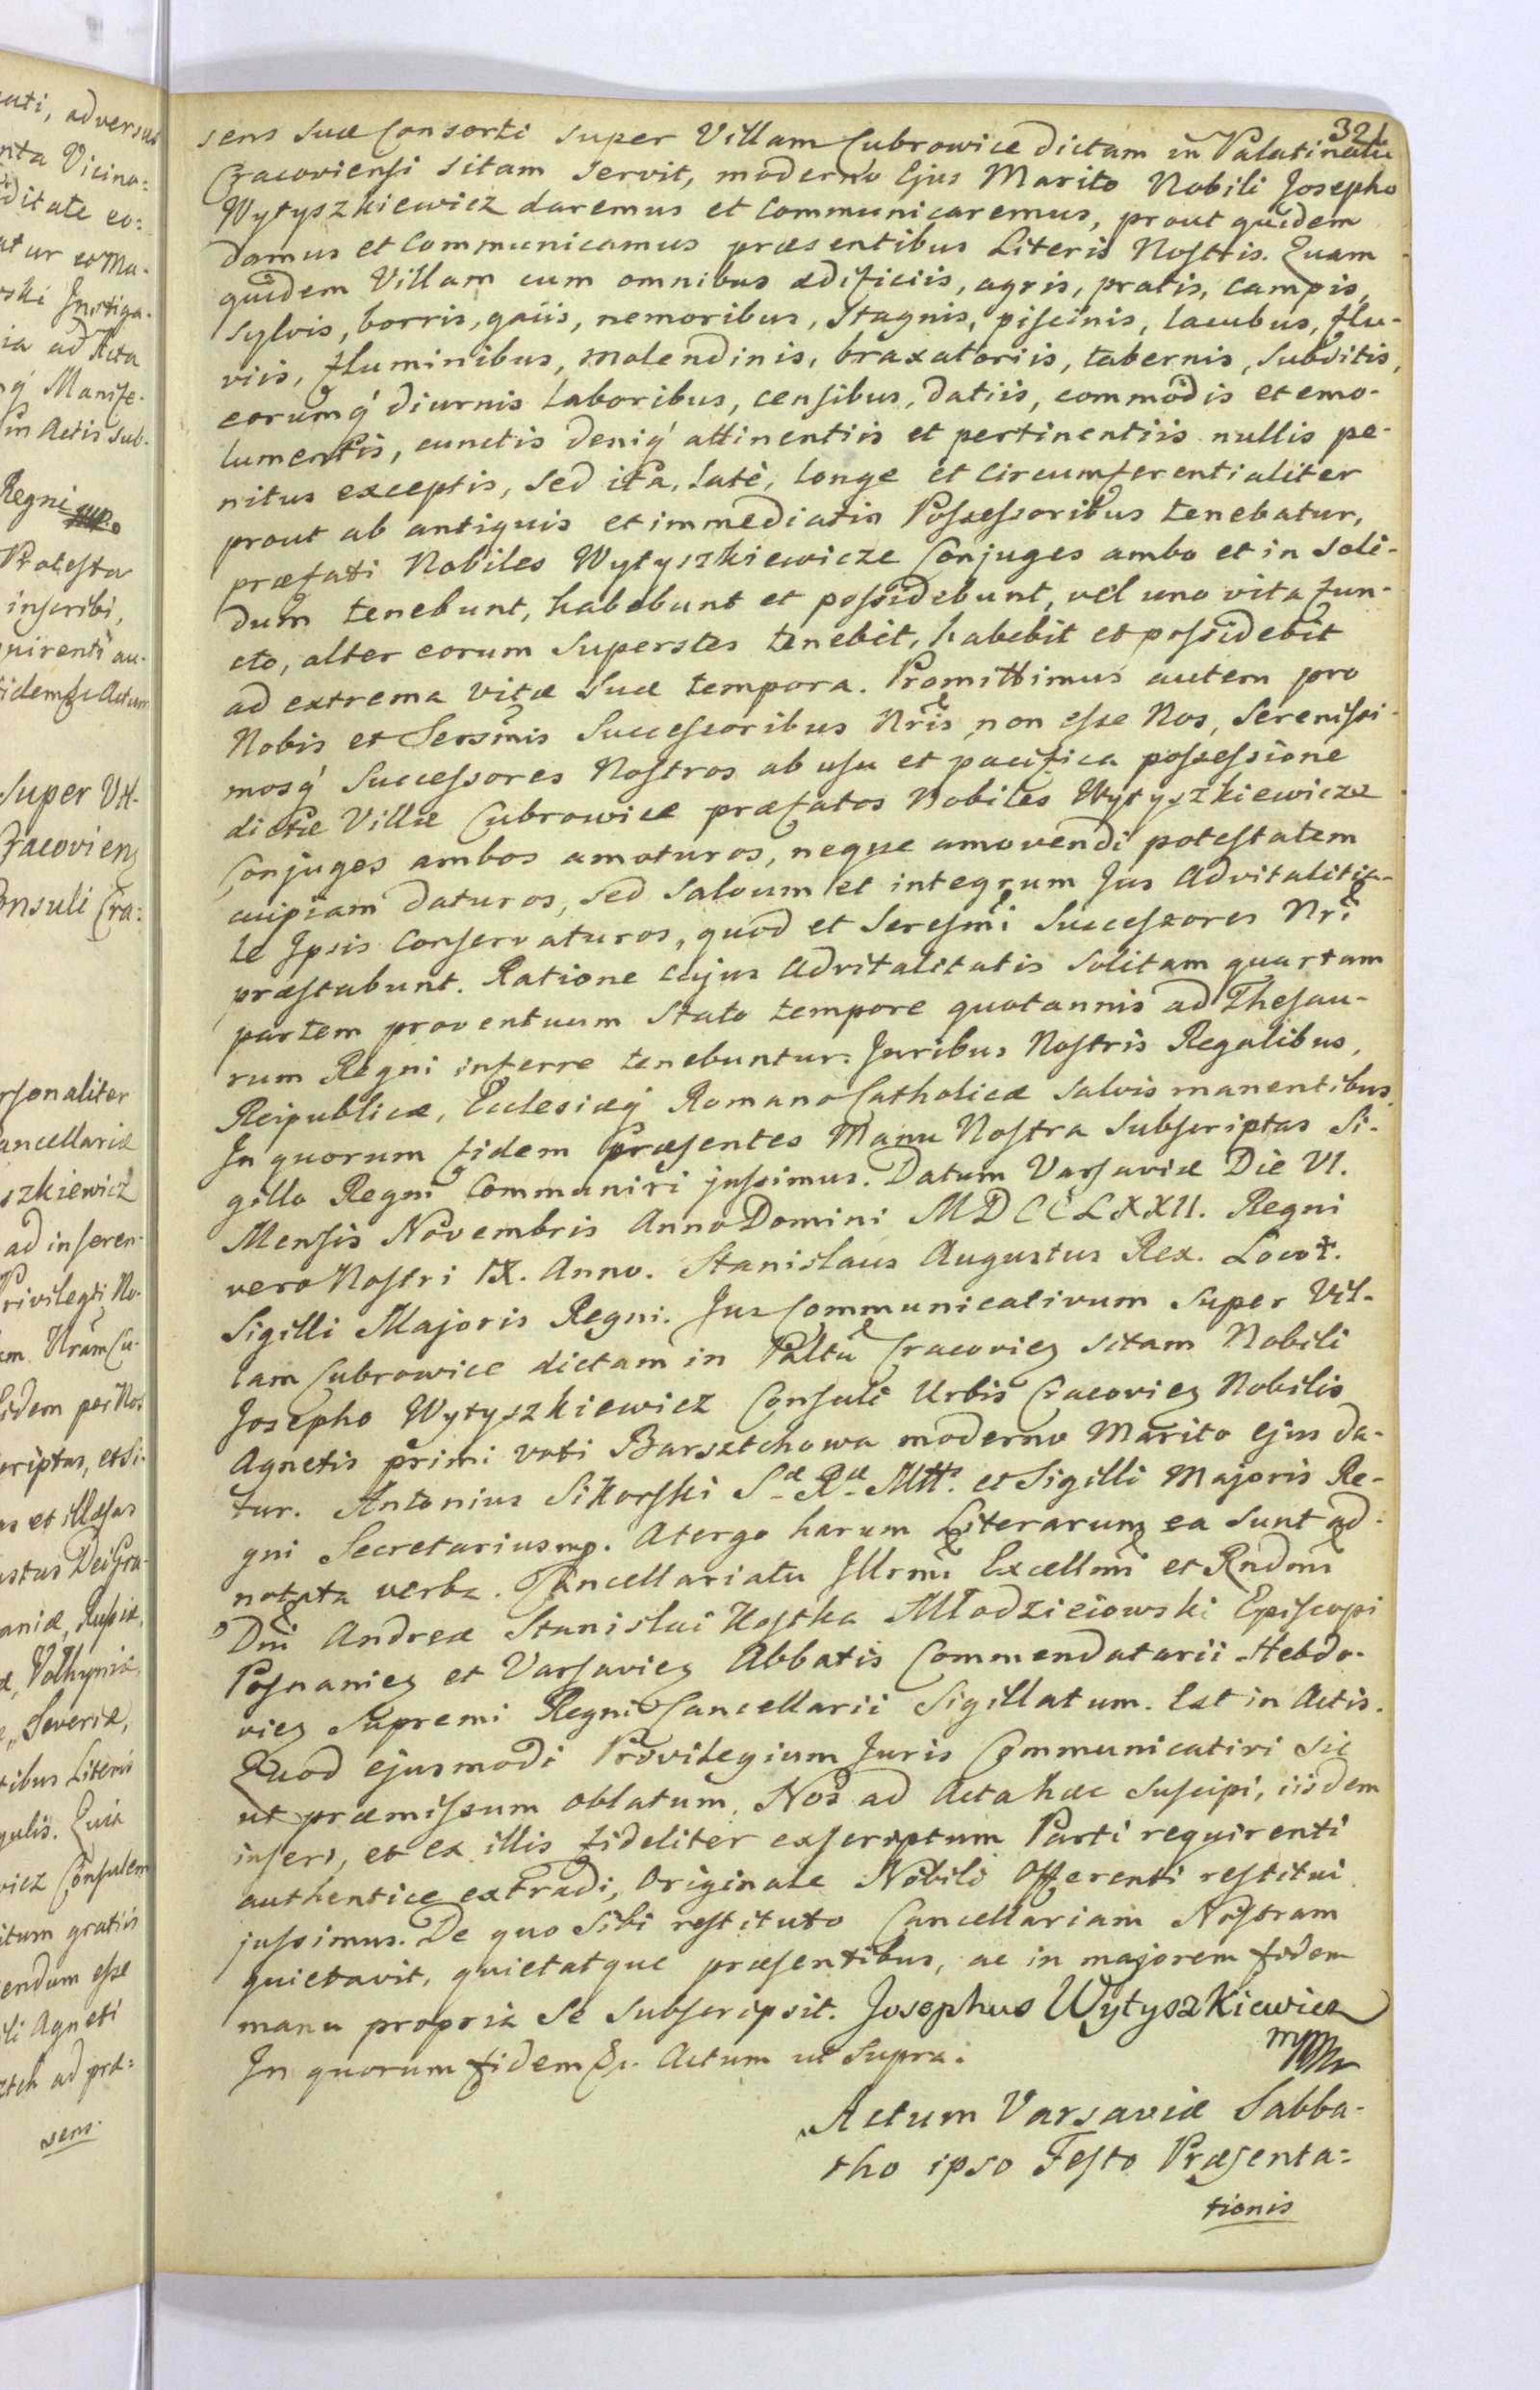 321
sens suæ Consorti super Villam Cubrowice dictam in Palatinatu
Cracoviensi sitam servit, moderno Ejus Marito Nobili Josepho
Wytyszkiewicz daremus et communicaremus, prout quidem
damus et communicamus præsentibus Literis Nostris. Quam
quidem Villam cum omnibus ædificiis, agris, pratis, campis,
sylvis, borris, gaiis, nemoribus, stagnis, piscinis, lacubus, flu-
viis, fluminibus, molendinis, braxatoriis, tabernis, subditis,
eorumq́ diurnis laboribus, censibus, datiis, commodis et emo-
lumentis, cunctis deniq́ attinentiis et pertinentiis nullis pe-
nitus exceptis, sed ita, latè, longe et circumferentialiter
prout ab antiquis et immediatis Possessoribus tenebatur,
præfati Nobiles Wytyszkiewicze Conjuges ambo et in soli-
dum tenebunt, habebunt et possidebunt, vel uno vita fun-
cto, alter eorum superstes tenebit, habebit et possidebit
ad extrema vitæ suæ tempora. Promittimus autem pro
Nobis et Sersmis Successoribus Nris, non esse Nos, Serenissi-
mosq́ Successores Nostros ab usu et pacifica possessione
dictæ Villæ Cubrowice præfatos Nobiles Wytyszkiewicze
Conjuges ambos amoturos, neque amovendi potestatem
cuipiam daturos, sed salvum et integrum Jus Advitalitia-
le Ipsis conservaturos, quod et Seresmi Successores Nri
præstabunt. Ratione cujus Advitalitatis solitam quartam
partem proventuum stato tempore quotannis ad Thesau-
rum Regni inferre tenebuntur. Juribus Nostris Regalibus,
Reipublicæ, Ecclesiæq́ Romano Catholicæ salvis manentibus.
In quorum fidem Præsentes Manu Nostra subscriptas Si-
gillo Regni Communiri jussimus. Datum Varsaviæ Die VI.
Mensis Novembris Anno Domini MDCCLXXII. Regni
vero Nostri IX. Anno. Stanislaus Augustus Rex. Locus
Sigilli Majoris Regni. Jus Communicativum super Vil-
lam Cubrowice dictam in Paltu Cracovien sitam Nobili
Josepho Wytyszkiewicz Consuli Urbis Cracovien Nobilis
Agnetis primi voti Barsztchowa moderno Marito Ejus da-
tur. Antonius Sikorski Sæ Ræ Mttis et Sigilli Majoris Re-
gni Secretarius mp. Atergo harum Literarum ea sunt ad-
notata verba. Cancellariatu Illrmi Excellmi et Rndmi
Dni Andreæ Stanislai Kostka Młodzieiowski Episcopi
Posnanien et Varsavien Abbatis Commendatarii Hebdo-
vien Supremi Regni Cancellarii Sigillatum. Est in Actis.
Quod ejusmodi Privilegium Juris Communicativi sic
ut præmissum oblatum. Nos ad Acta hæc suscipi, iisdem
inseri, et ex illis fideliter exscriptum Parti requirenti
authentice extradi, Originale Nobili Offerenti restitui
jussimus. De quo sibi restituto Cancellariam Nostram
quietavit, quietatque præsentibus, ac in majorem fidem
manu propria se subscripsit. Josephus Wytyszkiewicz
In quorum fidem &c. Actum ut supra.
Actum Varsaviæ Sabba-
tho ipso Festo Præsenta=
tionis